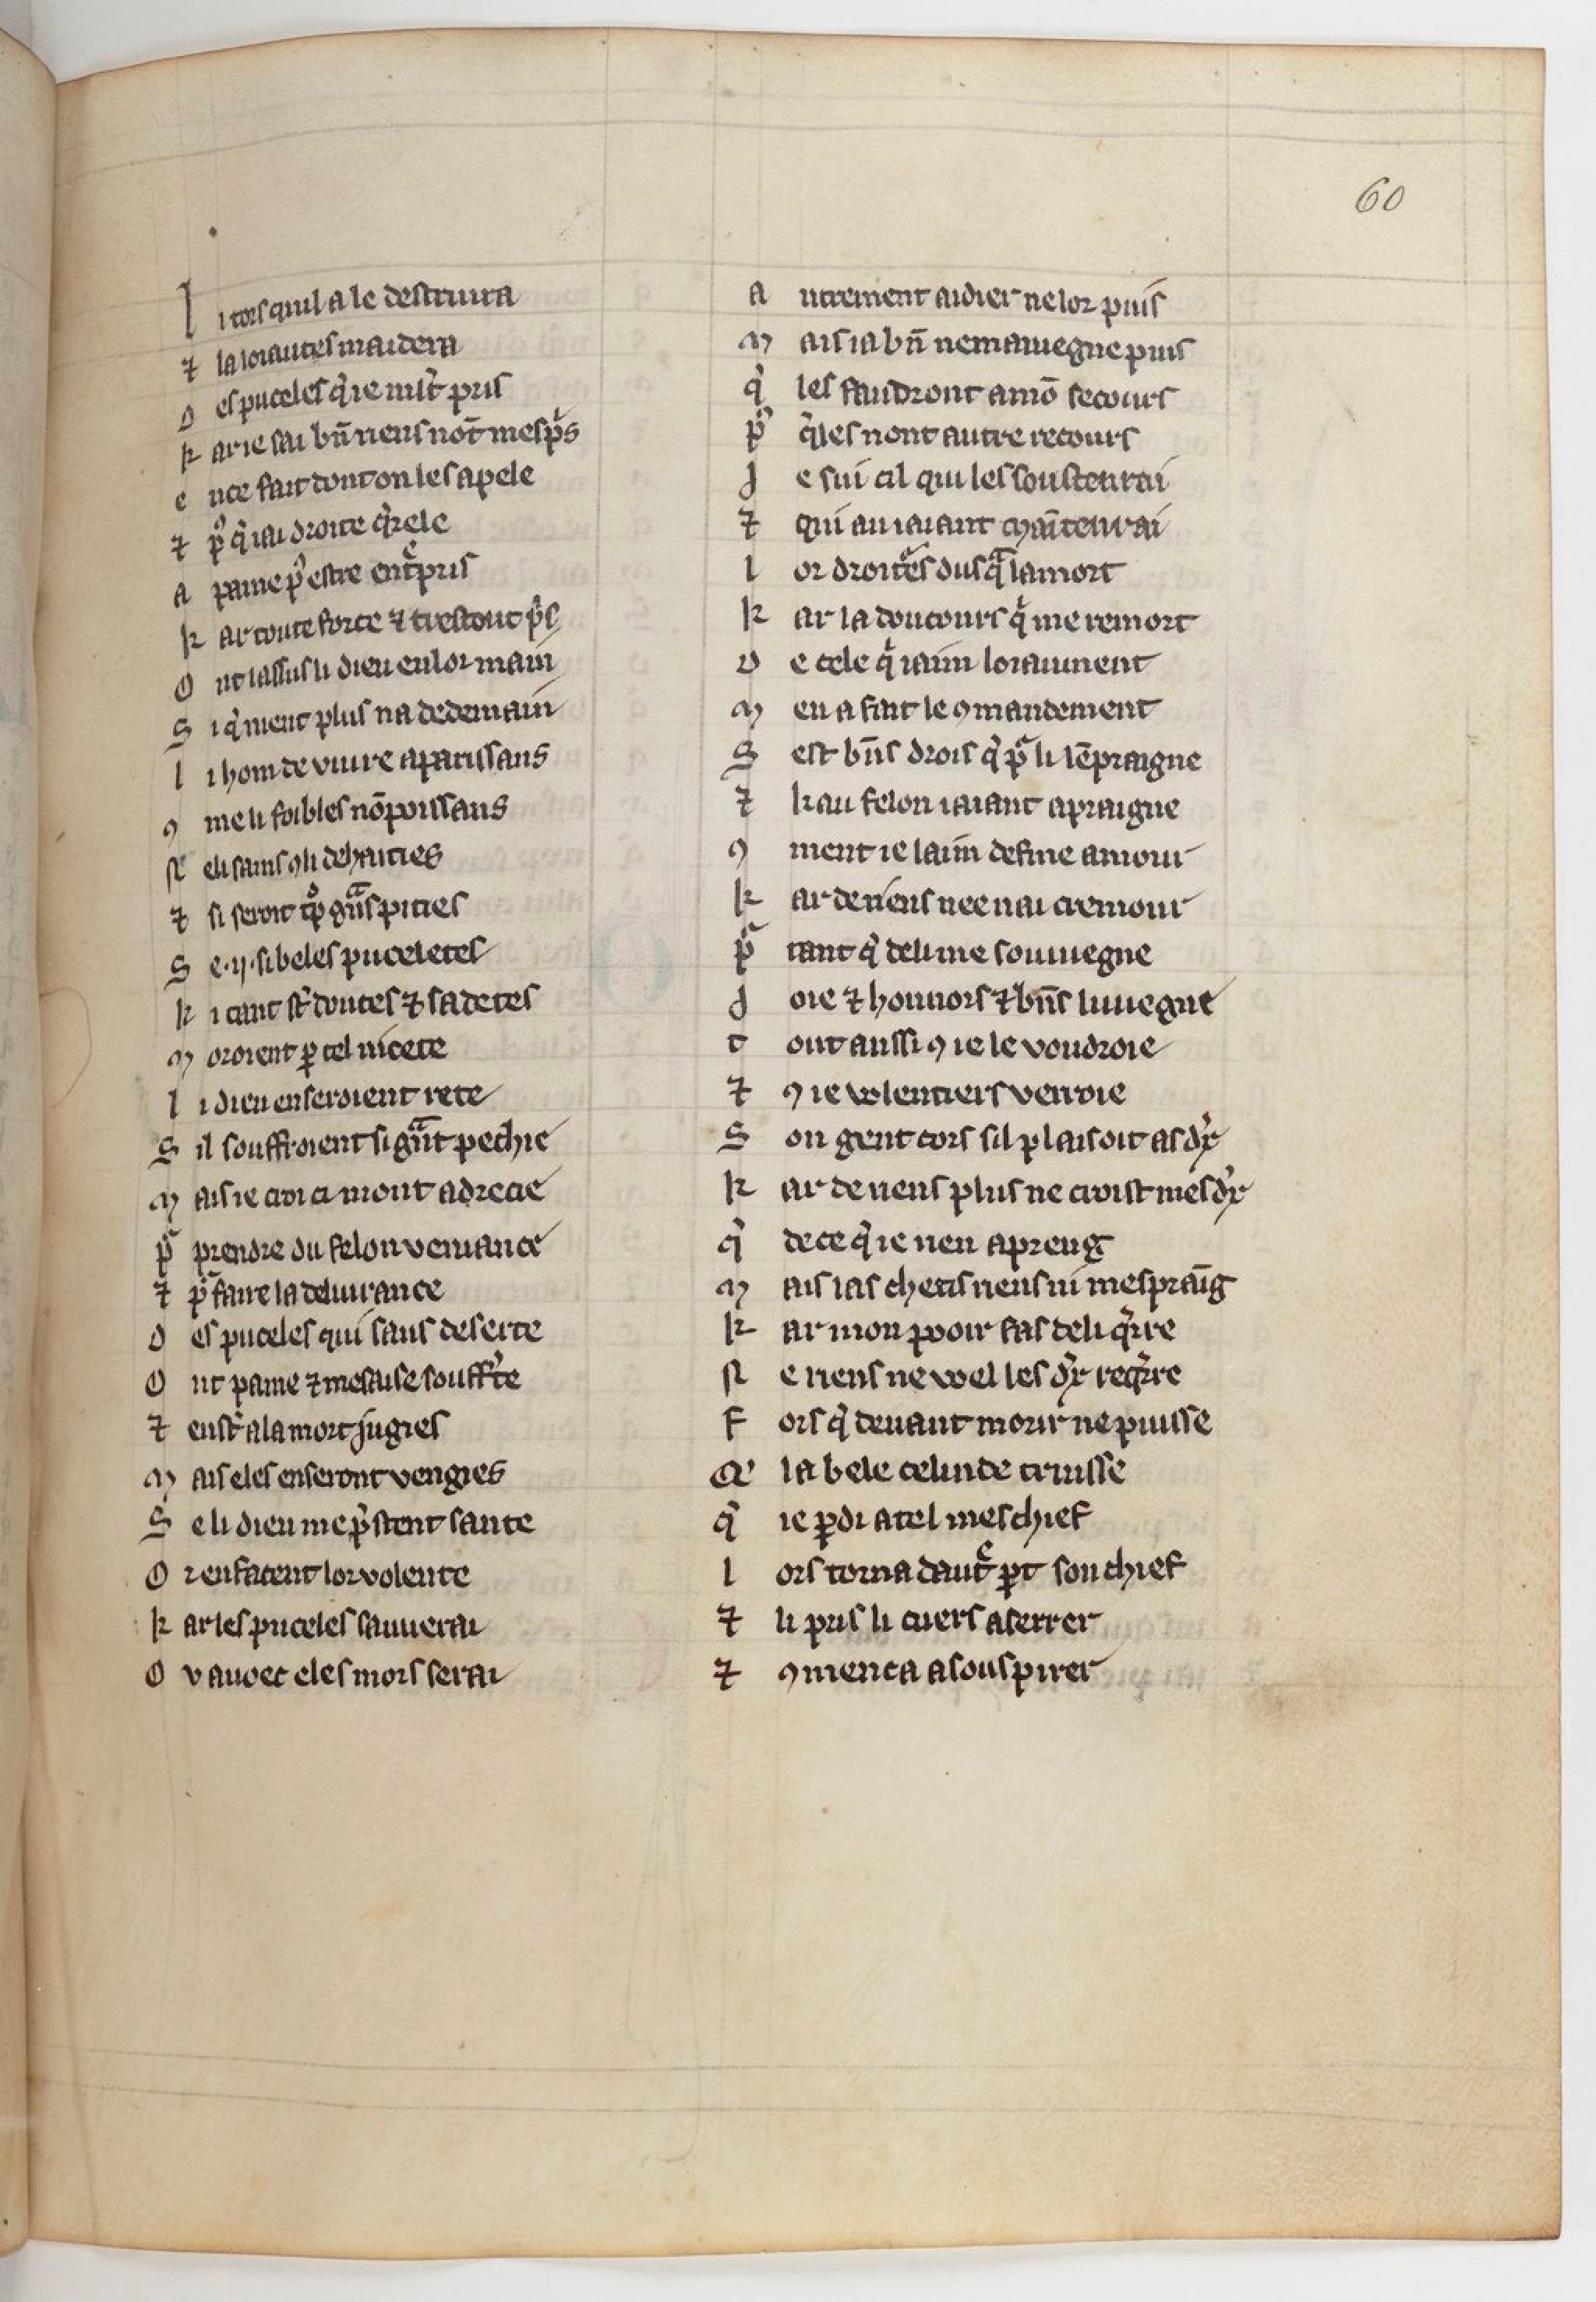 60
l i tors quil a le destruira
⁊ la loiautes maidera
D es puceles q̉ ie nul't pris
k ar ie sai bn̄ riens nōt mesp̉s
e nce fait dont on les apele
⁊ pͦ q̉ iai droite q̉rele
a paine pͦ estre ent͛pris
k ar toute force ⁊ trestout p̉s
O nt lassus li dieu en lor main
S i q̉ ment plus na de demain
l i hom de viure apaitissans
ꝯ me li foibles nō poissans
N e li sains ꝯ li dehaities
⁊ si seroit tͦp gᷓns pities
S e .ij. si beles puceletes
k i tant st̄ douces ⁊ sadetes
M oroient ꝑ tel nicete
l i dieu en seroient rete
S il souffroient si gᷓnt pechie
M ais ie croi ci mont adrecie
pͬ prendre du felon veniance
⁊ pͬ faire la deliurance
D es puceles qui sans deserte
O nt paine ⁊ mesaise souff̉te
⁊ en st̄ a la mort jugies
M ais eles en seront vengies
S e li dieu me p̉stent sante
O r en facent lor volente
k ar les puceles sauuerai
O v auoec eles mors serai
A utrement aidier ne lor puis
M ais ia bn̄ ne mauiegne puis
q̉ les faudront a mō secours
pͬ q̉les nont autre recours
J e sui cil qui les soustenrai
⁊ qui au iaiant maītenrai
l or droit͛es dusqᷓ la mort
k ar la doucours q̉ me remort
D e cele q̉ iaim loiaument
M en a fait le ꝯmandement
S est bn̄s drois q̉ pͬ li lēpraigne
⁊ kau felon iaiant apraigne
ꝯ ment ie laim de fine amour
k ar de riens nee nai cremour
pͬ tant q̉ de li me souuiegne
J oie ⁊ hounors ⁊ bn̄s li uiegne
t out aussi ꝯ ie le voudroie
⁊ ꝯ ie volentiers verroie
S on gent cors sil plaisoit as dx̉
k ar de riens plus ne croist mes dx̉
q̉ de ce q̉ ie nen apreng
M ais las cheitis riens ni mespraīg
k ar mon pooir fas de li q̉rre
N e riens ne voel les dx̉ req̉rre
F ors q̉ deuant morir ne puisse
Q' la bele celinde truisse
q̉ ie ꝑdi a tel meschief
l ors torna daut͛ ꝑt son chief
⁊ li pris li cuers a serrer
⁊ ꝯmenca a souspirer